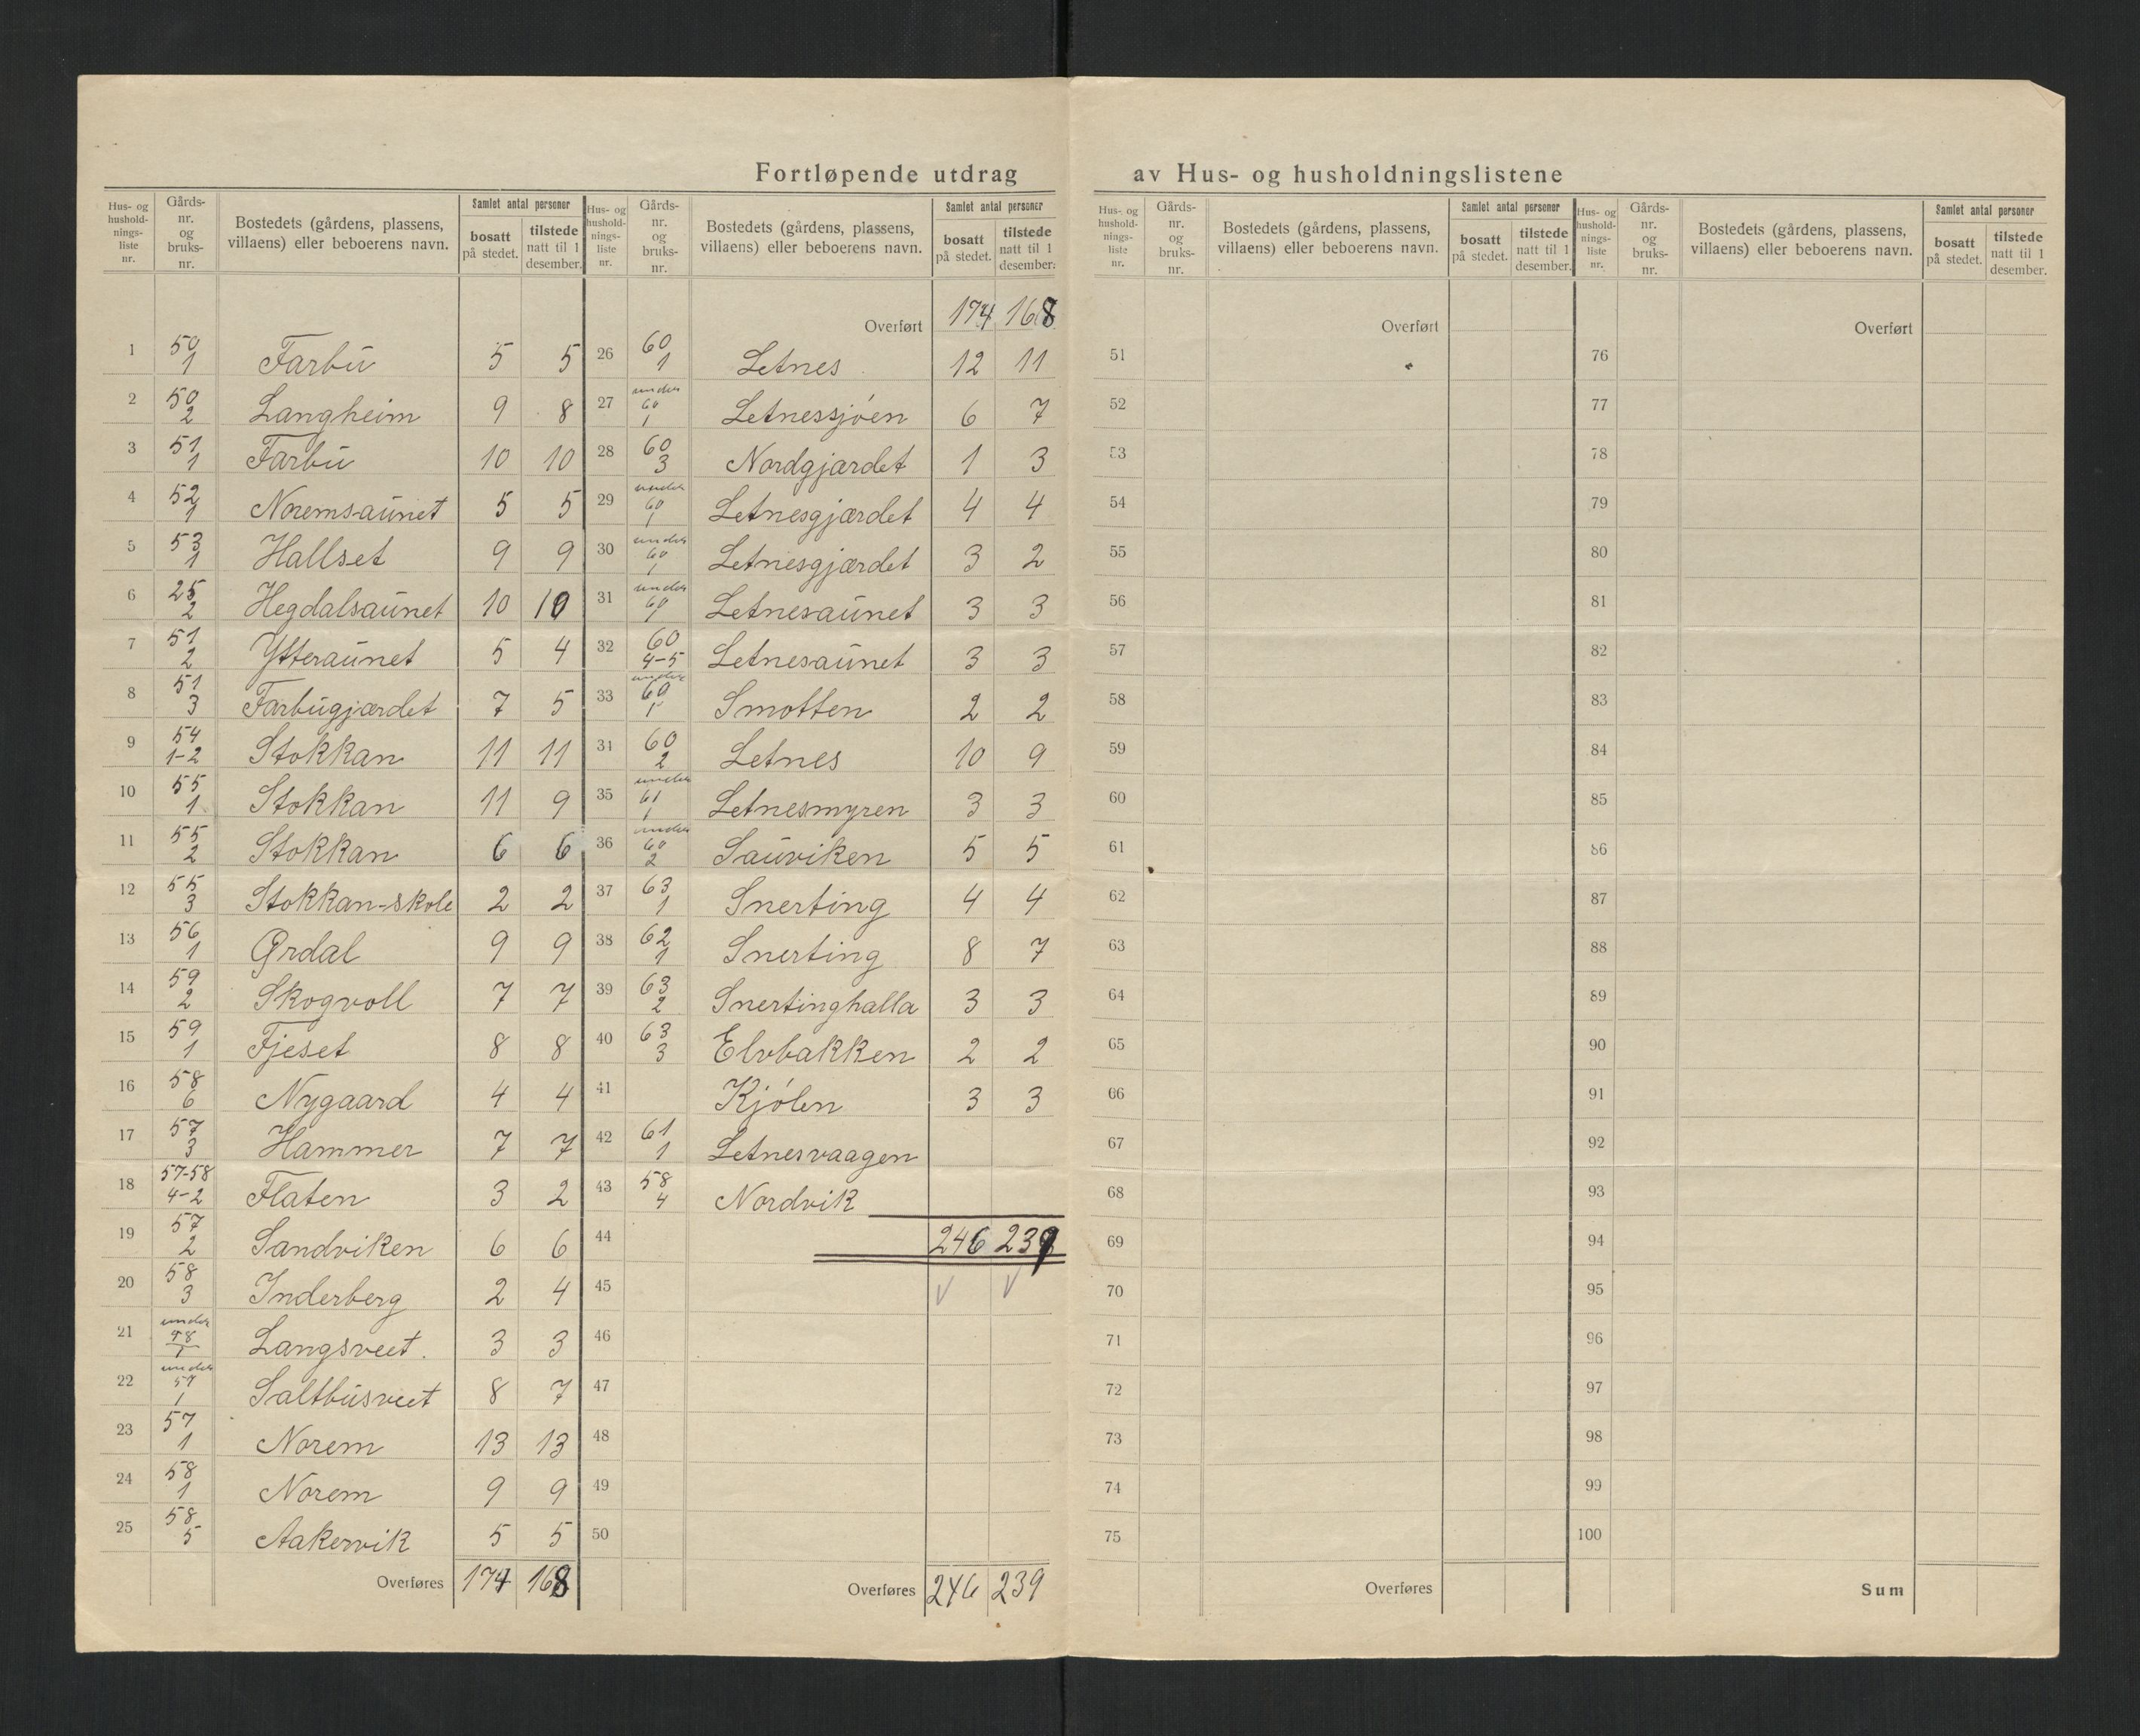 Fortløpende utdrag av Hus- og husholdningslistene
Hus- og hushold-nings-liste nr. | Gårds-nr. og bruks-nr. | Bostedets (gårdens, plassens, villaens) eller beboerens navn. | Samlet antal personer | bosatt på stedet. | tilstede natt til 1 desember.
1 50 1 Farbu 5 5
2 50 2 Langheim 9 8
3 51 1 Farbu 10 10
4 52 1 Noremsaunet 5 5
5 53 1 Hallset 9 9
6 25 2 Hegdalsaunet 10 10
7 51 2 Ytteraunet 5 4
8 51 3 Farbugjærdet 7 5
9 54 1-2 Stokkan 11 11
10 55 1 Stokkan 11 9
11 55 2 Stokkan 6 6
12 55 3 Stokkan-skole 2 2
13 56 1 Ørdal 9 9
14 59 2 Skogvoll 7 7
15 59 1 Fjeset 8 8
16 58 6 Nygaard 4 4
17 57 3 Hammer 7 7
18 57-58 4-2 Flaten 3 2
19 57 2 Sandviken 6 6
20 58 3 Inderberg 2 4
21 under 1 Langsveet. 3 3
22 under 57 1 Saltbusveet 8 7
23 57 1 Norem 13 13
24 58 1 Norem 9 9
25 58 5 Aakervik 5 5
Overføres 174 168
Hus- og hushold-nings-liste nr. | Gårds-nr. og bruks-nr. | Bostedets (gårdens, plassens, villaens) eller beboerens navn. | Samlet antal personer | bosatt på stedet. | tilstede natt til 1 desember.
Overført 174 168
26 60 1 Letnes 12 11
27 under 60 1 Letnessjøen 6 7
28 60 3 Nordgjærdet 1 3
29 under 60 1 Letnesgjærdet 4 4
30 under 60 1 Letnesgjærdet 3 2
31 under 60 1 Letnesaunet 3 3
32 60 4-5 Letnesaunet 3 3
33 under 60 1 Smotten 2 2
34 60 2 Letnes 10 9
35 under 61 1 Letnesmyren 3 3
36 under 60 2 Sauviken 5 5
37 63 1 Snerting 4 4
38 62 1 Snerting 8 7
39 63 2 Snertinghalla 3 3
40 63 3 Elvbakken 2 2
41 Kjølen 3 3
42 61 1 Letnesvaagen
43 58 4 Nordvik
44 246 239
45
46
47
48
49
50
Overføres 246 239
Hus- og hushold-nings-liste nr. | Gårds-nr. og bruks-nr. | Bostedets (gårdens, plassens, villaens) eller beboerens navn. | Samlet antal personer | bosatt på stedet. | tilstede natt til 1 desember.
Overført
51
52
53
54
55
56
57
58
59
60
61
62
63
64
65
66
67
68
69
70
71
72
73
74
75
Overføres
Hus- og hushold-nings-liste nr. | Gårds-nr. og bruks-nr. | Bostedets (gårdens, plassens, villaens) eller beboerens navn. | Samlet antal personer | bosatt på stedet. | tilstede natt til 1 desember.
Overført
76
77
78
79
80
81
82
83
84
85
86
87
88
89
90
91
92
93
94
95
96
97
98
99
100
Sum